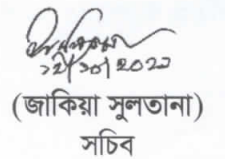 ১২/১০/২০২১
(জাকিয়া সুলতানা)
সচিব